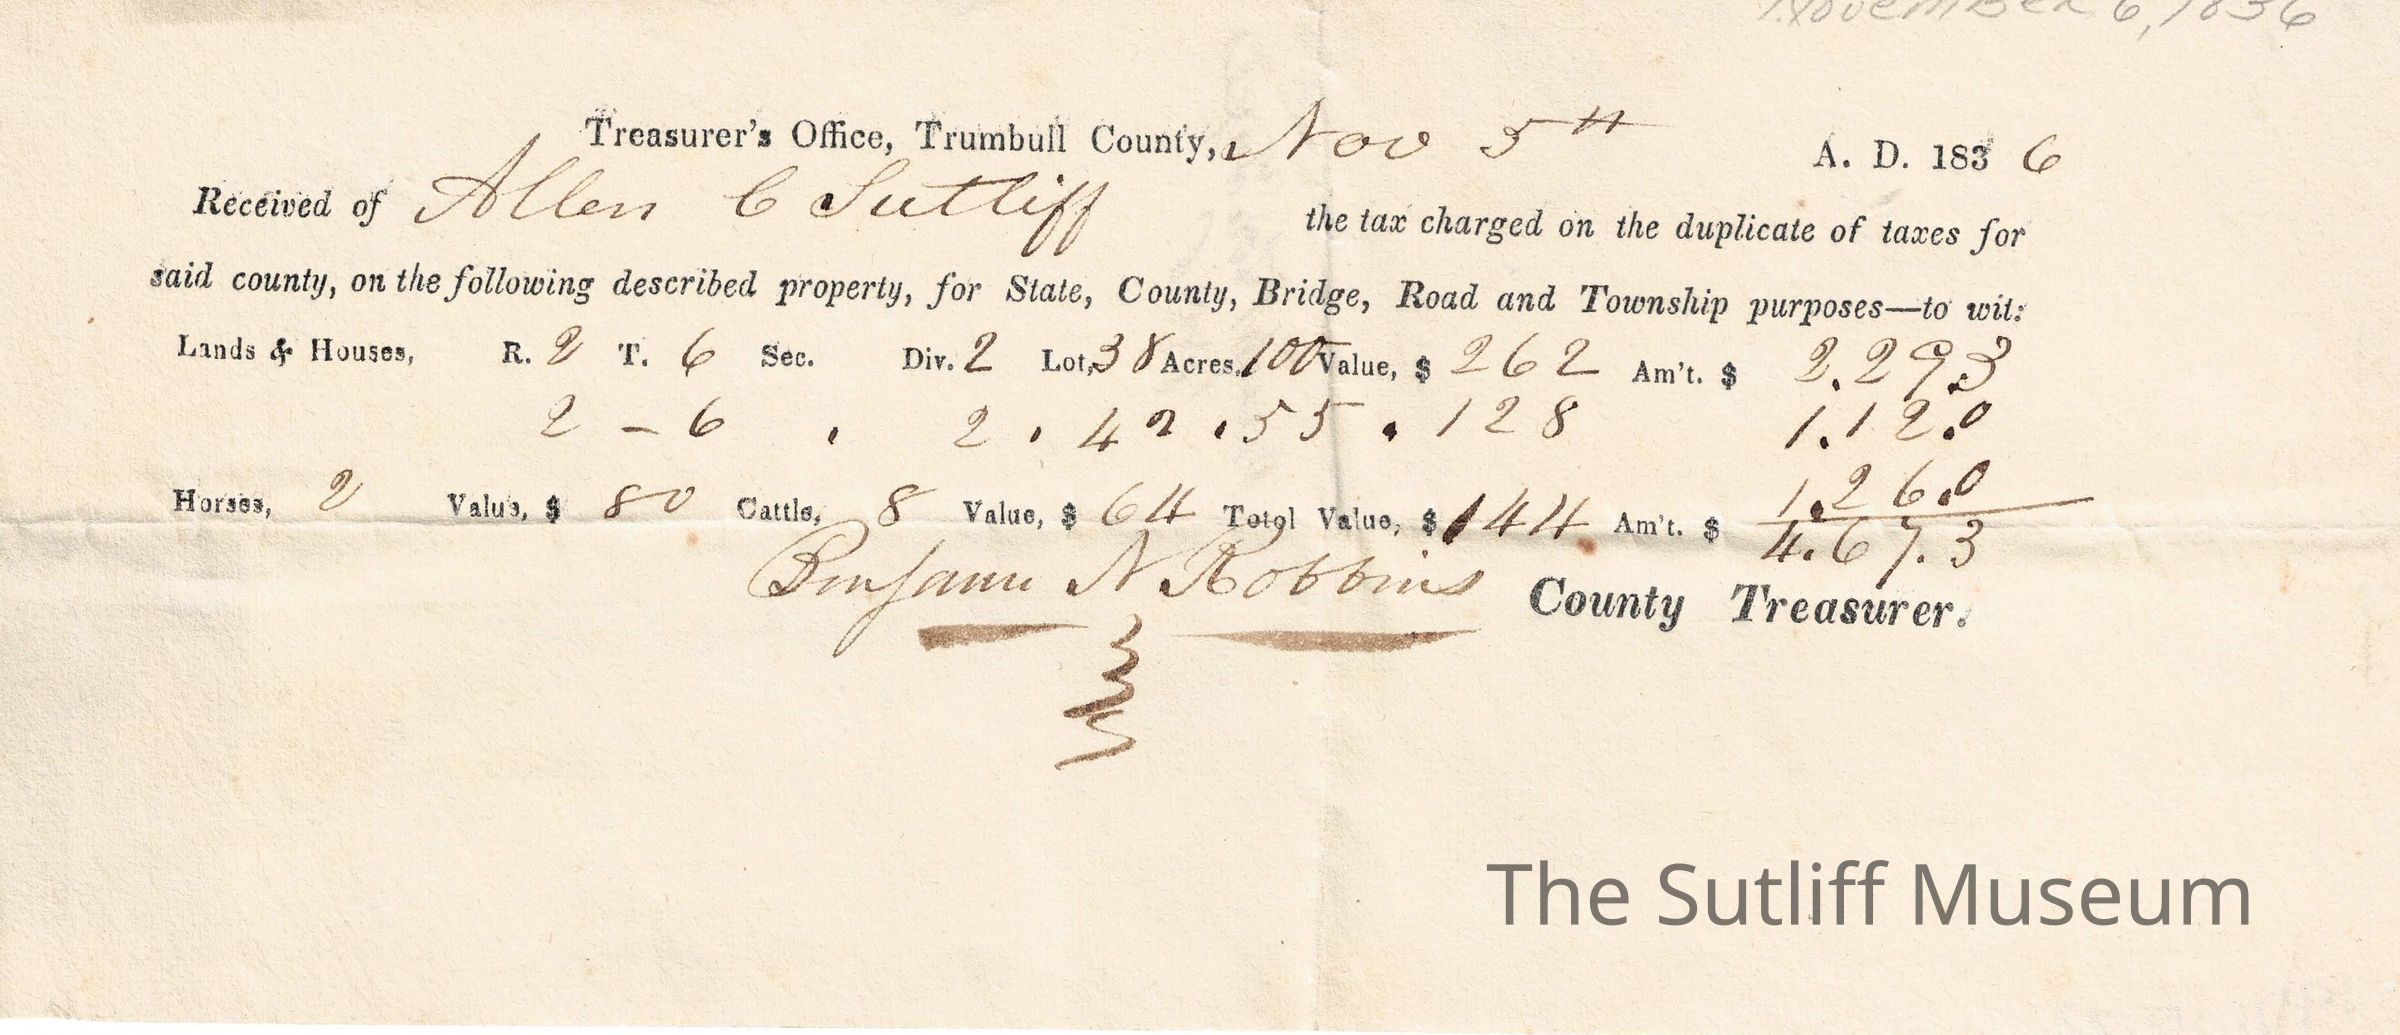 November 6, 1836
Treasurer's Office, Trumbull County, Nov 5th A. D. 1836
Received of Allen C Sutliff the tax charged on the duplicate of taxes for
said county, on the following described property, for State, County, Bridge, Road and Township purposes—to wit:
Lands & Houses, R. 2 T. 6 Sec. Div. 2 Lot, 38 Acres, 100 Value, $ 262 Am't. $ 2.29.3
2 – 6 . 2 . 42 . 55 . 128 1.12.0
Horses, 2 Value, $ 80 Cattle, 8 Value, $ 64 Total Value, $ 144 Am't. $ 1.26.0
4.67.3
Benjamin N Robbins County Treasurer.
The Sutliff Museum